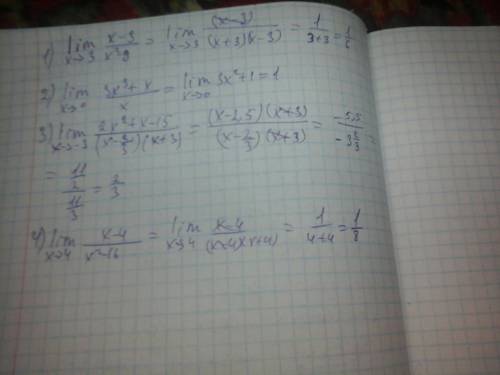 1) lim x→3 x-3 / x²-9 = lim x→3 (x-3) / (x+3)(x-3) = 1 / 3+3 = 1/6
2) lim x→0 3x³+x / x = lim x→0 3x²+1 = 1
3) lim x→-3 2x²+x-15 / (x-2/3)(x+3) = (x-2,5)(x+3) / (x-2/3)(x+3) = -5,5 / -3 2/3 =
= 11/2 / 11/3 = 2/3
4) lim x→4 x-4 / x²-16 = lim x→4 x-4 / (x-4)(x+4) = 1 / 4+4 = 1/8